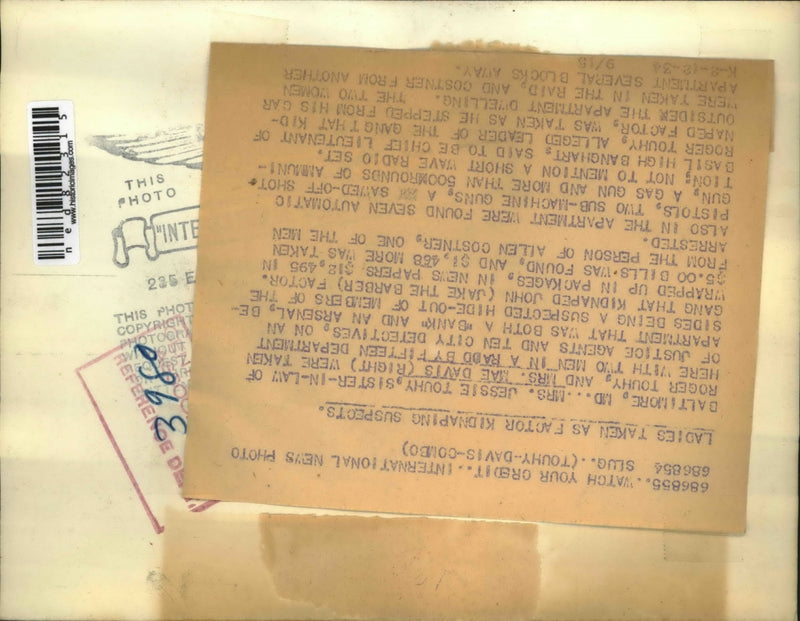 686855..WATCH YOUR CREDIT..INTERNATIONAL NEWS PHOTO
686854 SLUG..(TOUHY-DAVIS-COMBO)
LADIES TAKEN AS FACTOR KIDNAPING SUSPECTS.
BALTIMORE, MD... MRS. JESSIE TOUHY, SISTER-IN-LAW OF
ROGER TOUHY, AND MRS. MAE DAVIS (RIGHT) WERE TAKEN
HERE WITH TWO MEN IN A RADD BY FIFTEEN DEPARTMENT
OF JUSTICE AGENTS AND TEN CITY DETECTIVES, ON, AN
APARTMENT THAT WAS BOTH A "BANK" AND AN ARSENAL, BE-
SIDES BEING A SUSPECTED HIDE-OUT OF MEMBERS OF THE
GANG THAT KIDNAPED JOHN (JAKE THE BARBER) FACTOR.
WRAPPED UP IN PACKAGES, IN NEWS PAPERS $12,495 IN
$5.00 BILLS.WAS FOUND, AND $1,468 MORE WAS TAKEN
FROM THE PERSON OF ALLEN COSTNER, ONE OF THE MEN
ARRESTED.
ALSO IN THE APARTMENT WERE FOUND SEVEN AUTOMATIC
PISTOLS, TWO SUB-MACHINE GUNS, A SAWED-OFF SHOT-
GUN, A GAS GUN AND MORE THAN 500 ROUNDS OF AMMUNI-
TION; NOT TO MENTION A SHORT WAVE RADIO SET.
BASIL HIGH BANGHART, SAID TO BE CHIEF LIEUTENANT OF
ROGER TOUHY, ALLEGED LEADER OF THE GANG THAT KID-
NAPED FACTOR, WAS TAKEN AS HE STEPPED FROM HIS CAR
OUTSIDER THE APARTMENT DWELLING. THE TWO WOMEN
WERE TAKEN IN THE RAID, AND COSTNER FROM ANOTHER
APARTMENT SEVERAL BLOCKS AWAY.
K-2-12-34 9/15
ned82315
www.historicimages.com
THIS
PHOTO
"INTE
235 E
THIS PHOT
COPYRIGHT
PHOTOGRA
REFERENCE DE
3980